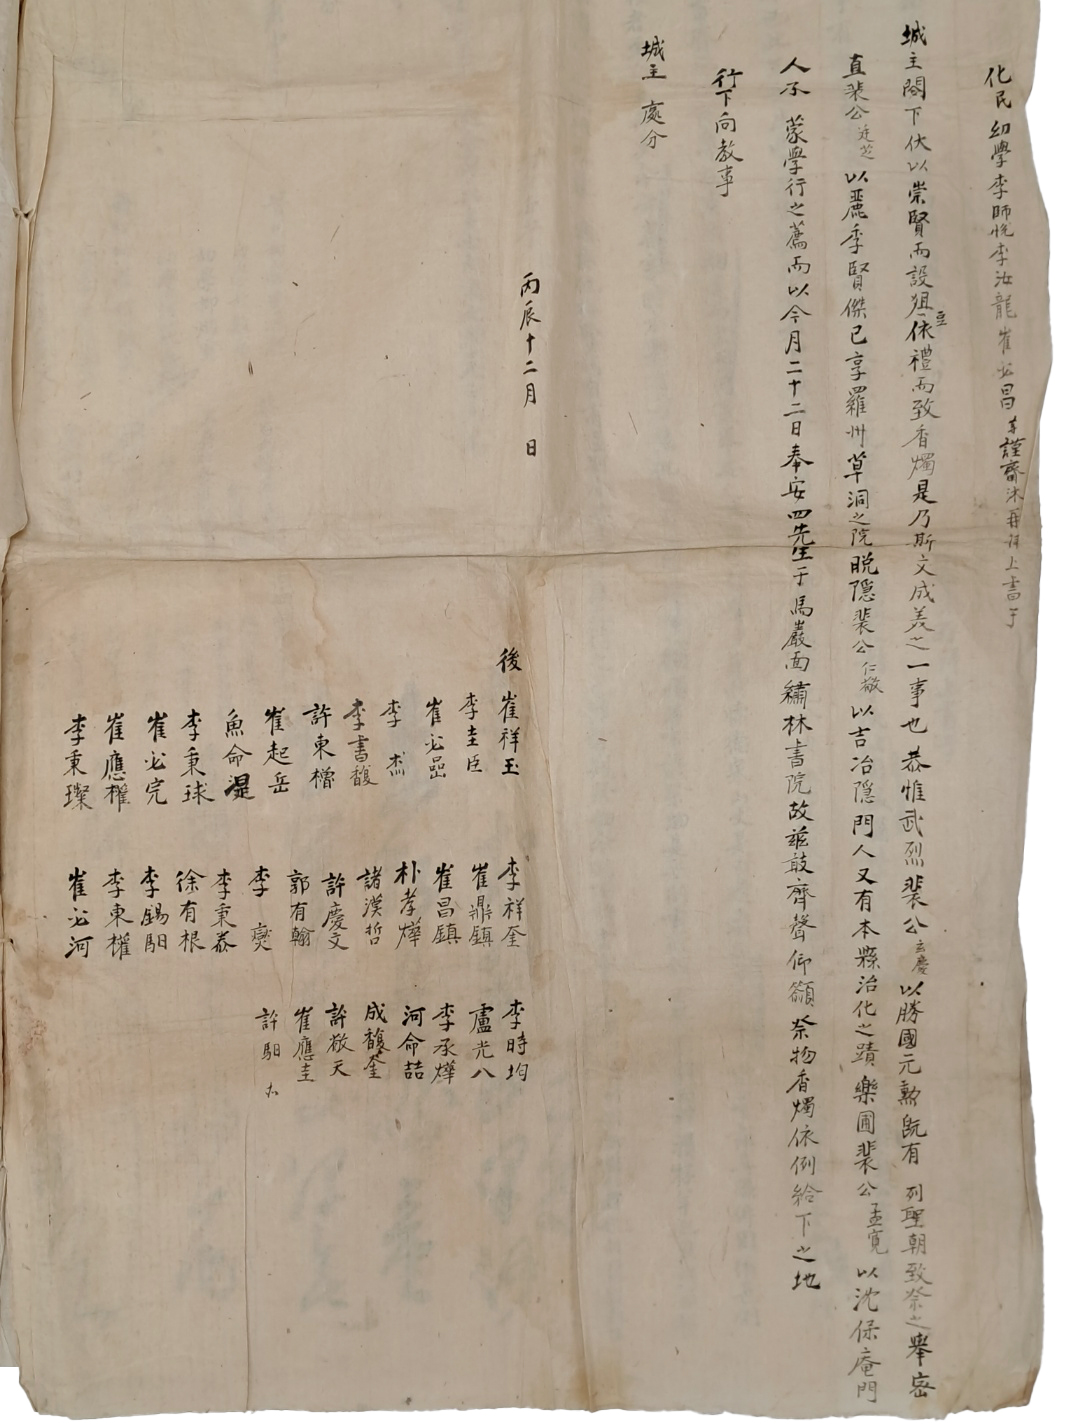 化民幼學李師悅李汝龍崔必昌等謹齋沐再拜上書于
城主閤下伏以崇賢而設俎豆依禮而致香燭是乃斯文成美之一事也恭惟武烈裴公玄慶以勝國元勳旣有 列聖朝致祭之擧密
直裴公廷芝以麗季賢傑已享羅州草洞之院晩隱裴公仁敬以吉冶隱門人又有本縣治化之蹟樂圃裴公孟寬以沈保庵門
人不 蒙學行之薦而以今月二十二日奉安四先生于馬巖面繡林書院故玆敢齊聲仰籲祭物香燭依例給下之地
行下向敎事
城主 處分
丙辰十二月 日
後 崔祥玉 李祥奎 李時均
李圭臣 崔鼎鎭 盧光八
崔必嵒 崔昌鎭 李承燁
李杰 朴孝燁 河命喆
李書馥 諸漢哲 成馥奎
許東櫓 許慶文 許敬天
崔起岳 郭有翰 崔應圭
魚命湜 李燮 許馹 尔
李秉球 李秉泰
崔必完 徐有根
崔應權 李錫馹
李秉璨 李東權
崔必河